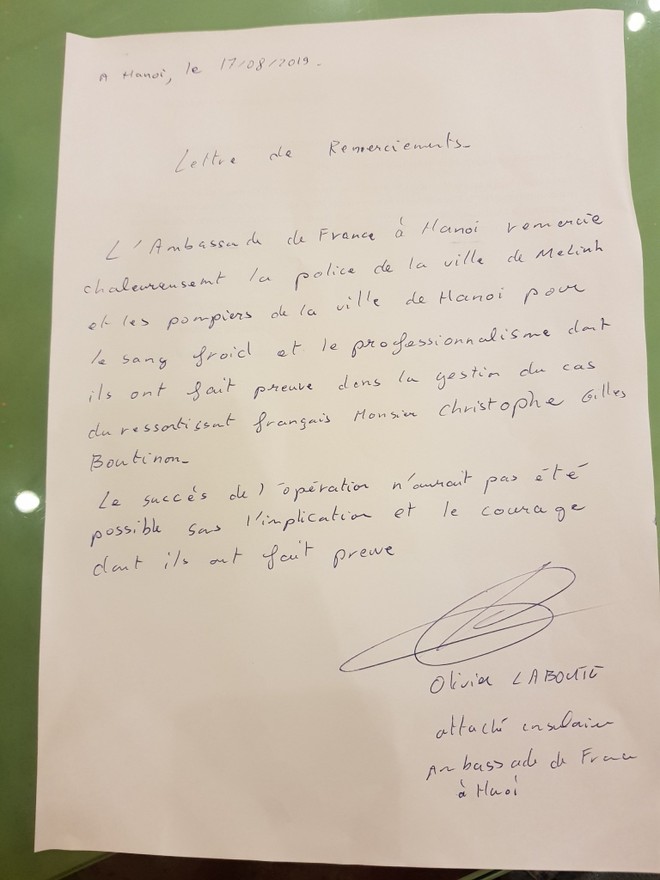 A Hanoi, le 17/08/2019.
Lettre de Remerciements
L'Ambassade de France à Hanoi remercie
chaleureusement la police de la ville de Melinh
et les pompiers de la ville de Hanoi pour
le sang froid et le professionnalisme dont
ils ont fait preuve dans la gestion du cas
du ressortissant français Monsieur Christophe Gilles
Boutinon
Le succès de l'opération n'aurait pas été
possible sans l'implication et le courage
dont ils ont fait preuve
Olivier
attaché consulaire
Ambassade de France
à Hanoi